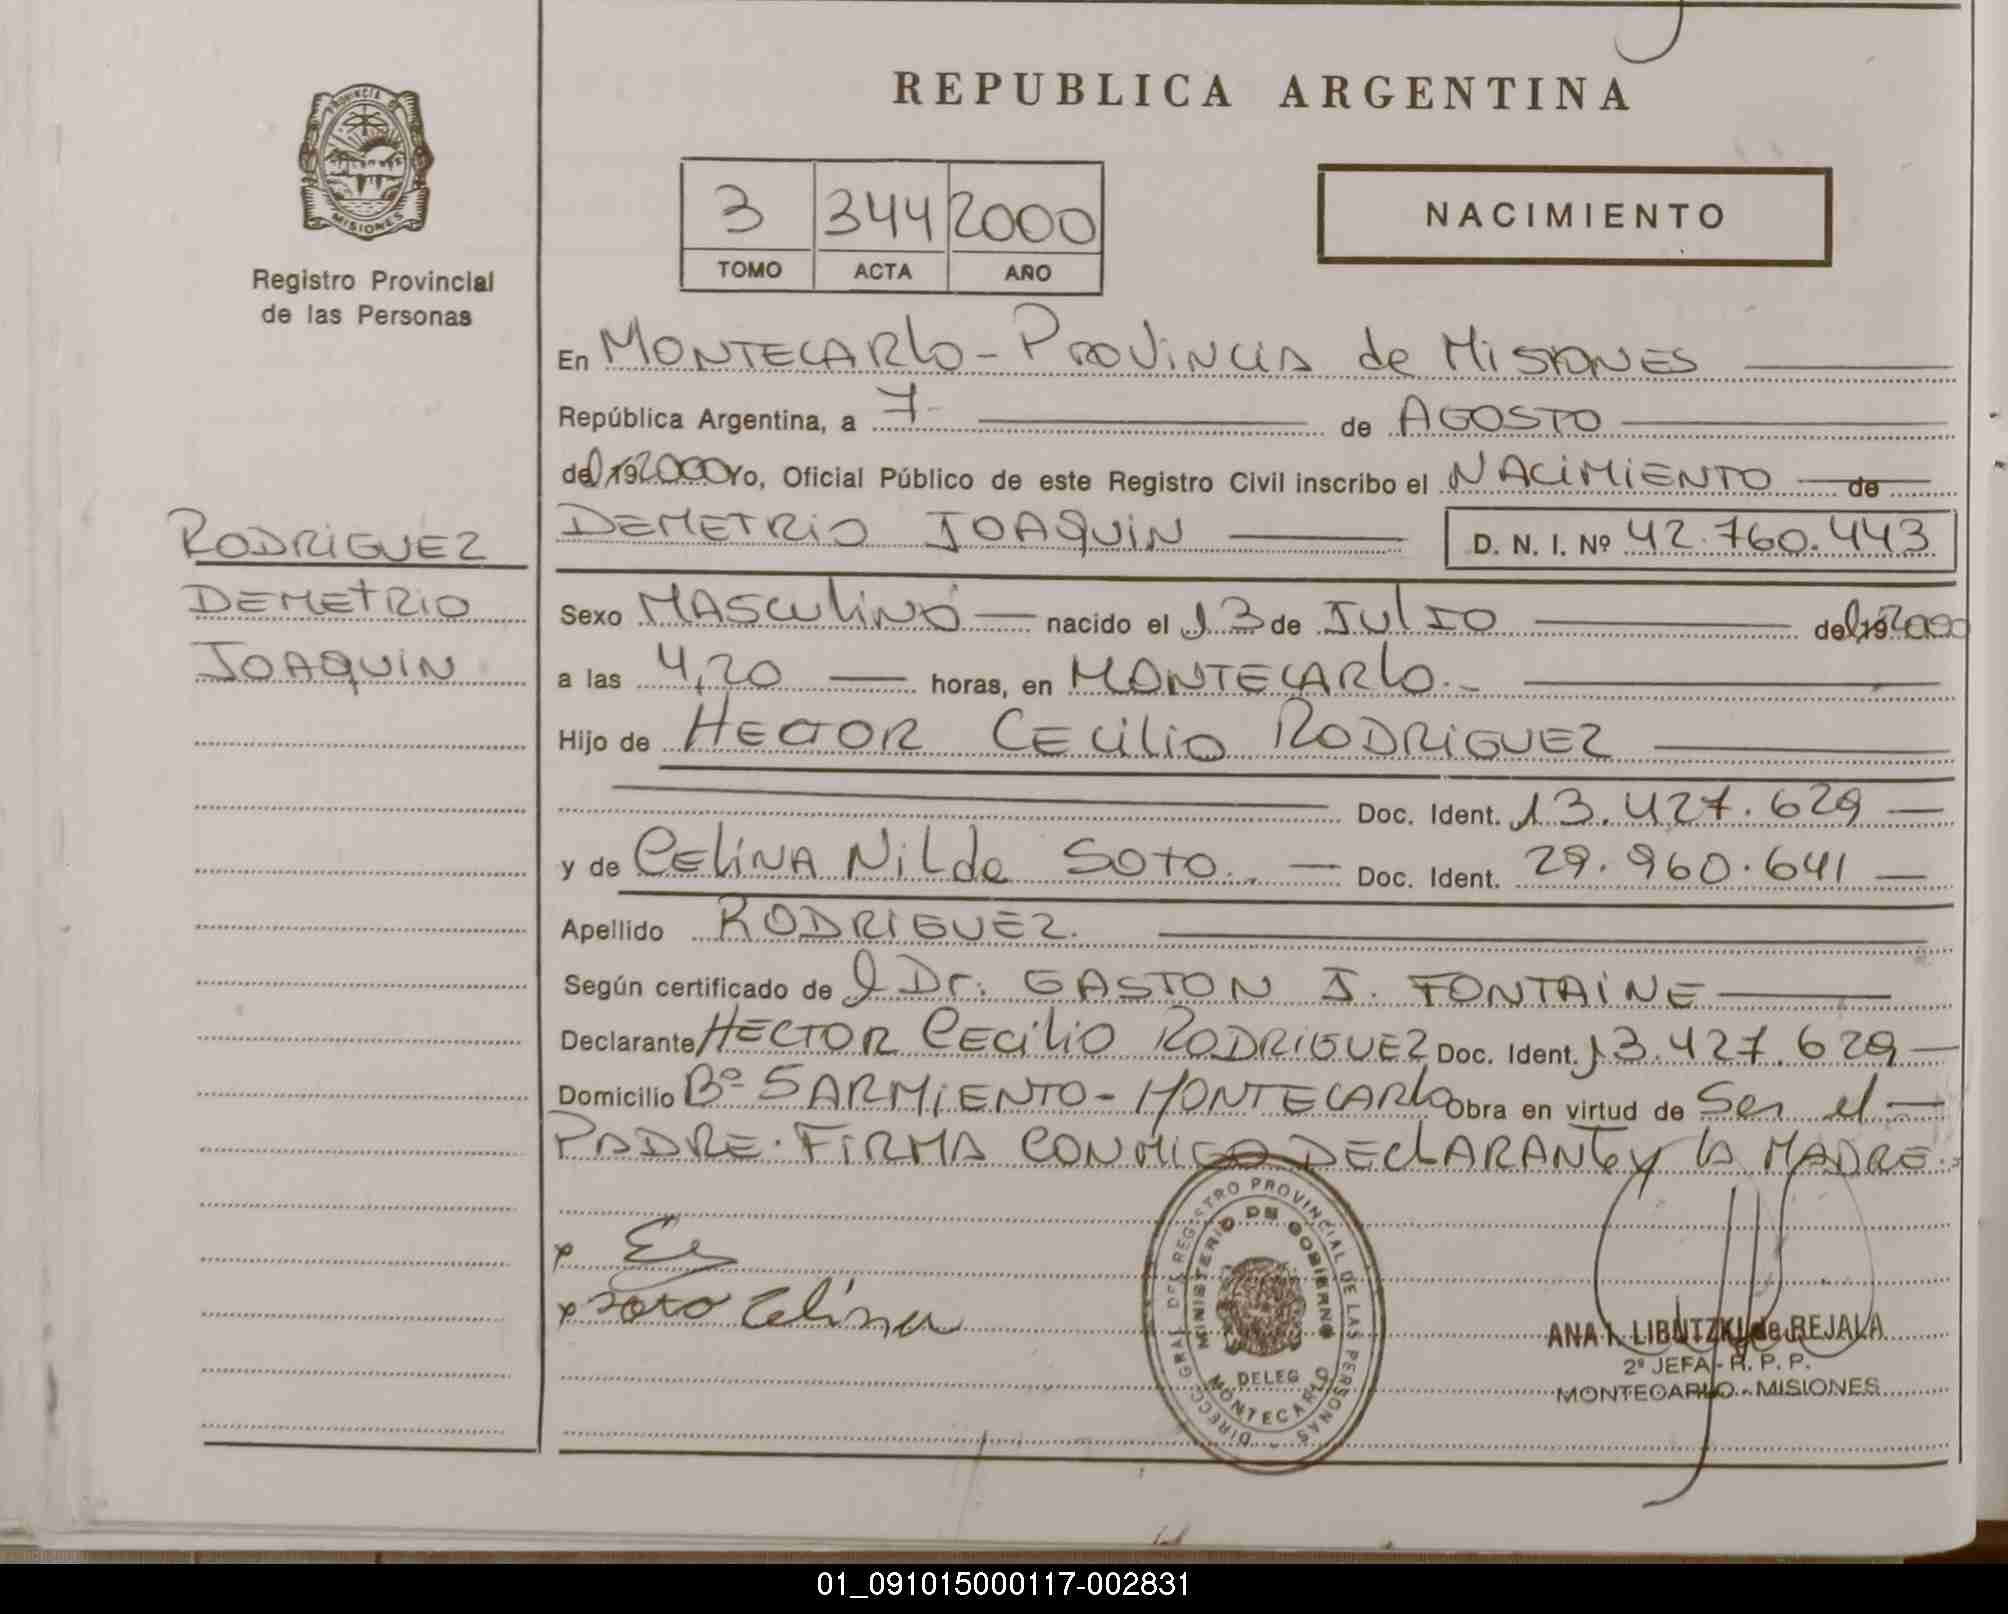 REPUBLICA ARGENTINA
PROVINCIA DE
MISIONES
Registro Provincial
de las Personas
3 344 2000
TOMO ACTA AÑO
NACIMIENTO
En MONTECARLO - PROVINCIA de MISIONES
República Argentina, a 7 de AGOSTO
del 19 2000 Yo, Oficial Público de este Registro Civil inscribo el NACIMIENTO de
DEMETRIO JOAQUIN D. N. I. Nº 42.760.443
RODRIGUEZ
DEMETRIO
JOAQUIN
Sexo MASCULINO nacido el 13 de JULIO del 19 2000
a las 4,20 horas, en MONTECARLO.-
Hijo de HECTOR CECILIO RODRIGUEZ
Doc. Ident. 13.427.629
y de CELINA NILDA SOTO.. Doc. Ident. 29.960.641
Apellido RODRIGUEZ.
Según certificado del Dr. GASTON J. FONTAINE
Declarante HECTOR CECILIO RODRIGUEZ Doc. Ident. 13.427.629
Domicilio Bº SARMIENTO - MONTECARLO Obra en virtud de Ser el
PADRE. FIRMA CONMIGO DECLARANTE y la MADRE.
x
x Soto Celina
DIRECC. GRAL. DEL REGISTRO PROVINCIAL DE LAS PERSONAS
MINISTERIO DE GOBIERNO
DELEG
MONTECARLO
ANA I. LIBUTZKI de REJALA
2º JEFA - R. P. P.
MONTECARLO - MISIONES
01_091015000117-002831